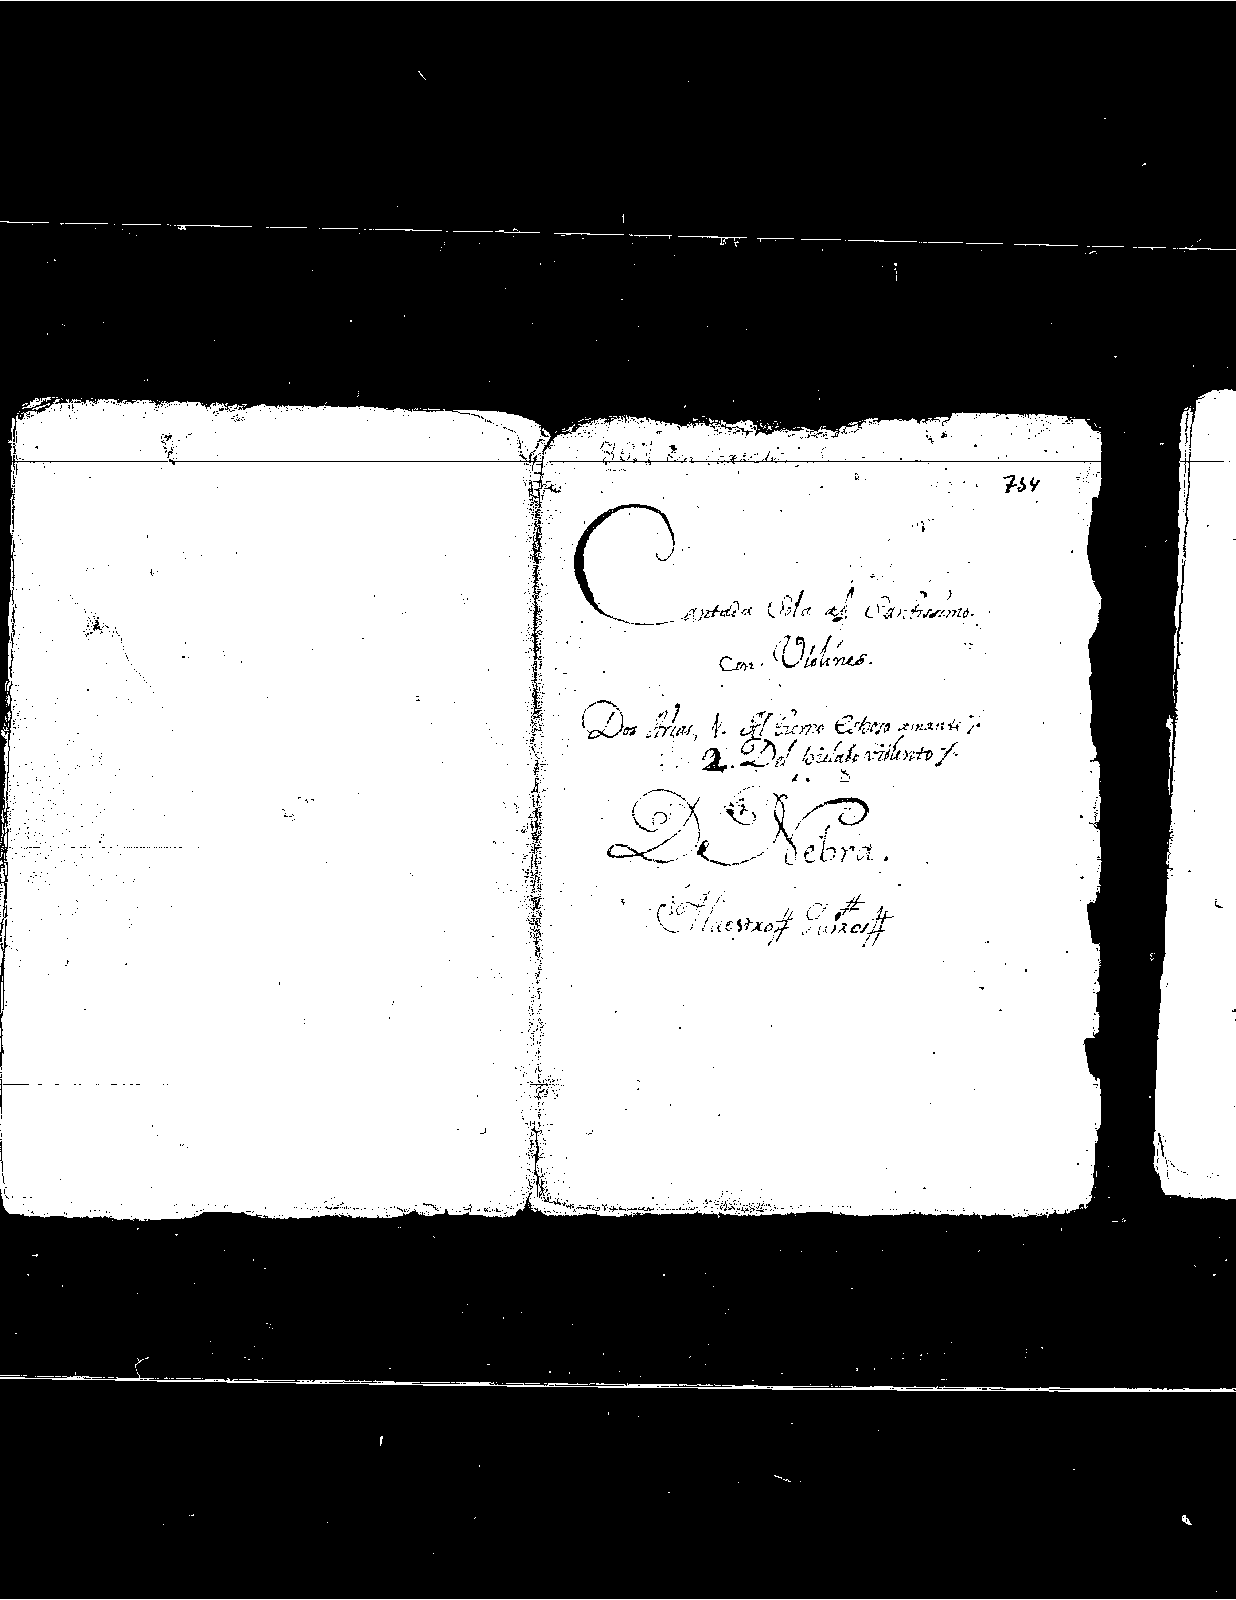 734
Cantada Sola al Santissimo.
Con. Violines.
Dos Arias, 1. Al tierno Esposo amante
2. Del violento
De Nebra.
Maestro